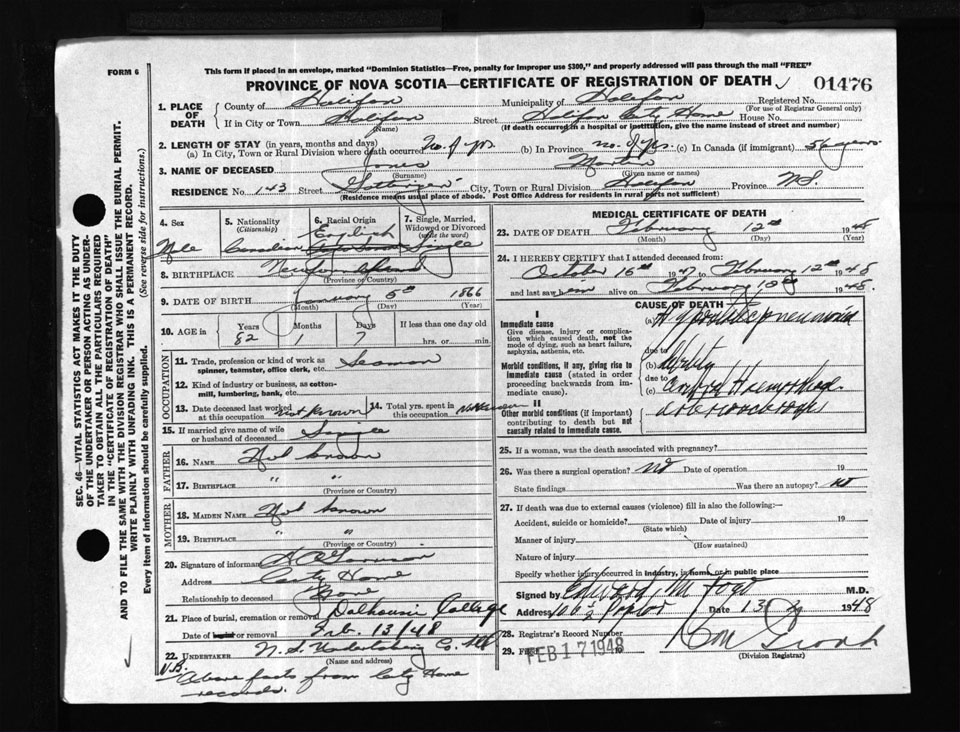 FORM 6
This form if placed in an envelope, marked "Dominion Statistics—Free, penalty for improper use $300," and properly addressed will pass through the mail "FREE"
PROVINCE OF NOVA SCOTIA—CERTIFICATE OF REGISTRATION OF DEATH 01476
1. PLACE OF DEATH
County of Halifax Municipality of Halifax Registered No.
(For use of Registrar General only)
If in City or Town Halifax Street Halifax City Home House No.
(Name) (If death occurred in a hospital or institution, give the name instead of street and number)
2. LENGTH OF STAY (in years, months and days)
(a) In City, Town or Rural Division where death occurred No. of yrs (b) In Province no. of yrs. (c) In Canada (if immigrant) 56 years
3. NAME OF DECEASED Jones Martin
(Surname) (Given name or names)
RESIDENCE No. 143 Street Gottingen City, Town or Rural Division Halifax Province N.S.
(Residence means usual place of abode. Post Office Address for residents in rural parts not sufficient)
4. Sex
Mle
5. Nationality
(Citizenship)
Canadian
6. Racial Origin
English
7. Single, Married, Widowed or Divorced
(write the word)
Single
8. BIRTHPLACE Newfoundland
(Province or Country)
9. DATE OF BIRTH January 5th 1866
(Month) (Day) (Year)
10. AGE in Years Months Days If less than one day old
82 1 7 hrs. or min.
OCCUPATION
11. Trade, profession or kind of work as spinner, teamster, office clerk, etc. Seaman
12. Kind of industry or business, as cotton-mill, lumbering, bank, etc.
13. Date deceased last worked at this occupation Not known
14. Total yrs. spent in this occupation Not known
15. If married give name of wife or husband of deceased Single
FATHER
16. NAME Not known
17. BIRTHPLACE " "
(Province or Country)
MOTHER
18. MAIDEN NAME Not known
19. BIRTHPLACE " "
(Province or Country)
20. Signature of informant
Address City Home
Relationship to deceased None
21. Place of burial, cremation or removal Dalhousie College
Date of burial or removal Feb. 13/48
22. UNDERTAKER N. S. Undertaking Co. Ltd
(Name and address)
N.B. Above facts from City Home
records.
MEDICAL CERTIFICATE OF DEATH
23. DATE OF DEATH February 12th 1948
(Month) (Day) (Year)
24. I HEREBY CERTIFY that I attended deceased from:
October 16th 1947 to February 12th 1948
and last saw him alive on February 10th 1948.
CAUSE OF DEATH
I
Immediate cause
Give disease, injury or complication which caused death, not the mode of dying, such as heart failure, asphyxia, asthenia, etc.
(a) Hypostatic pneumonia
due to
Morbid conditions, if any, giving rise to immediate cause (stated in order proceeding backwards from immediate cause).
(b) debility
due to
(c) Cerebral Haemorrhage
II
Other morbid conditions (if important) contributing to death but not causally related to immediate cause.
arteriosclerosis
25. If a woman, was the death associated with pregnancy?
26. Was there a surgical operation? No Date of operation 19
State findings Was there an autopsy? no
27. If death was due to external causes (violence) fill in also the following:—
Accident, suicide or homicide? Date of injury 19
(State which)
Manner of injury
(How sustained)
Nature of injury
Specify whether injury occurred in industry, in home, or in public place
Signed by M.D.
Address Date 13 1948
28. Registrar's Record Number
29. Filed FEB 17 1948
(Division Registrar)
SEC. 46—VITAL STATISTICS ACT MAKES IT THE DUTY
OF THE UNDERTAKER OR PERSON ACTING AS UNDER-
TAKER TO OBTAIN ALL THE PARTICULARS REQUIRED
IN THE "CERTIFICATE OF REGISTRATION OF DEATH"
AND TO FILE THE SAME WITH THE DIVISION REGISTRAR WHO SHALL ISSUE THE BURIAL PERMIT.
WRITE PLAINLY WITH UNFADING INK. THIS IS A PERMANENT RECORD.
Every item of information should be carefully supplied. (See reverse side for instructions.)